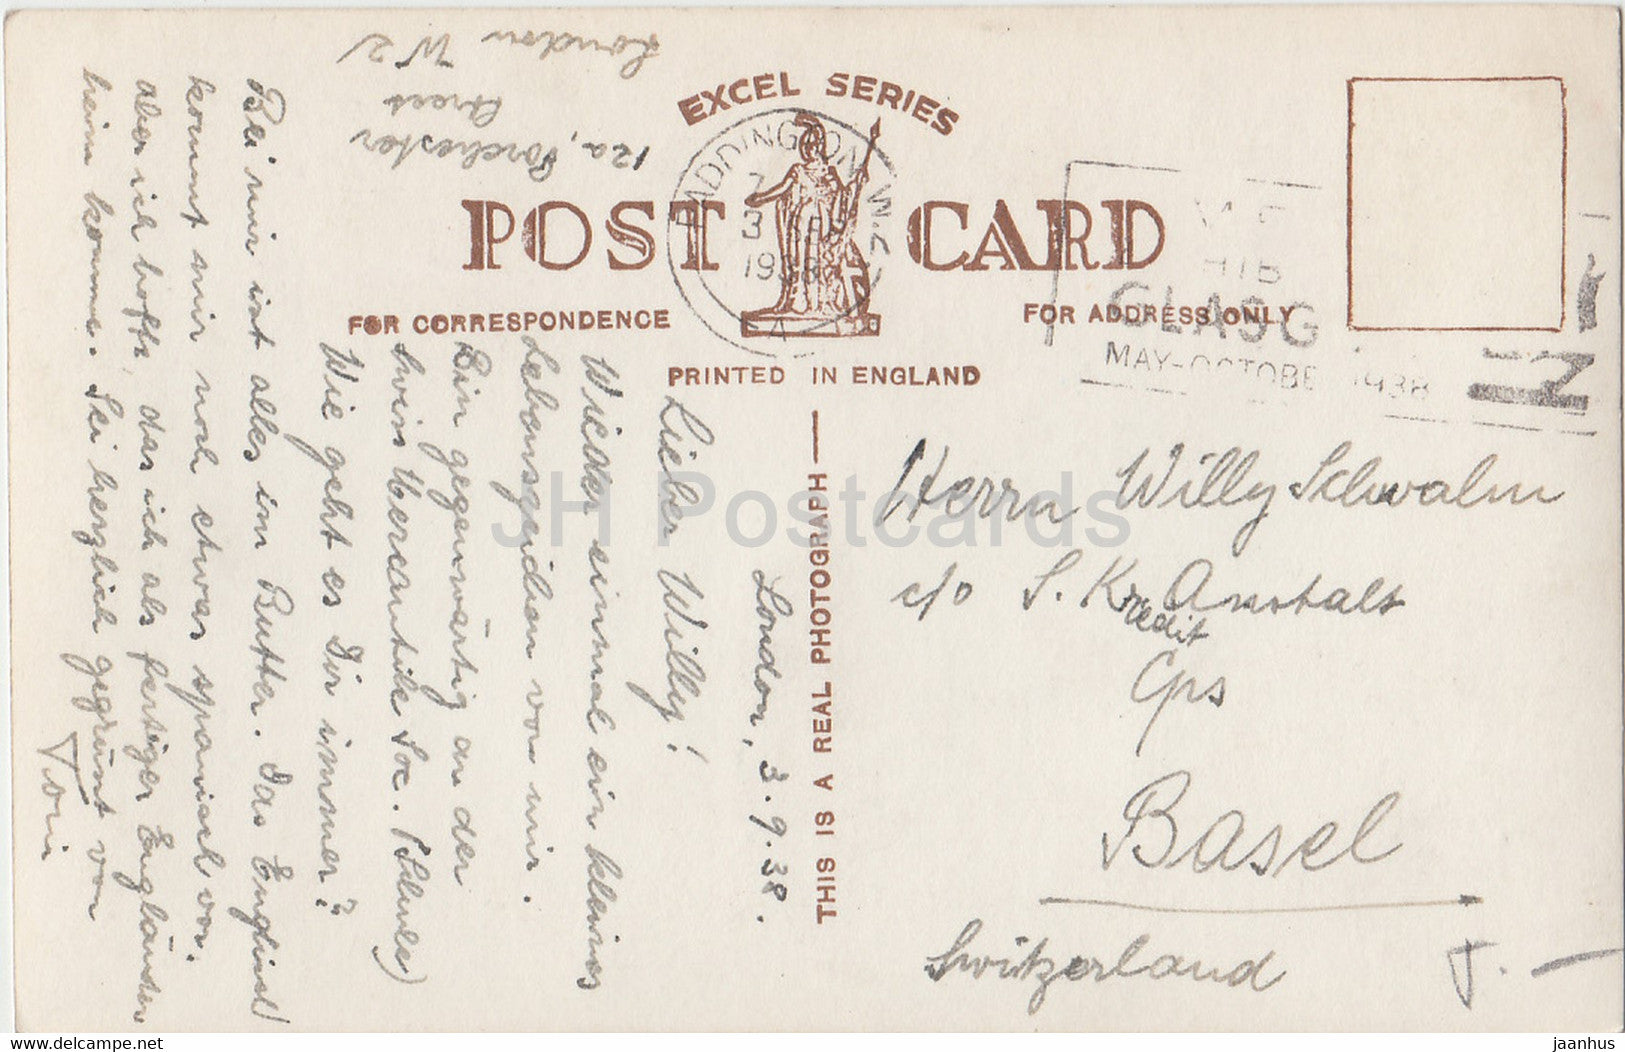 EXCEL SERIES
POST CARD
FOR CORRESPONDENCE
FOR ADDRESS ONLY
PRINTED IN ENGLAND
THIS IS A REAL PHOTOGRAPH
PADDINGTON W.2
3 SEP
1938
A
GLASG
MAY-OCTOBE 1938
12a, Porchester
London W2
London, 3.9.38.
Lieber Willy!
Wieder einmal ein kleines
Lebenszeichen von mir.
Bin gegenwärtig an der
Swiss Mercantile Soc. (Schule)
Wie geht es Dir immer?
Bei mir ist alles im Butter. Das Englisch
kommt mir noch etwas spanisch vor.
aber ich hoffe, das ich als fertiger Engländer
heim komme. Sei herzlich gegrüsst von
Toni
Herrn Willy Schwalm
c/o S. Kredit Anstalt
Basel
Switzerland
JH Postcards
www.jhpostcards.com
jaanhus